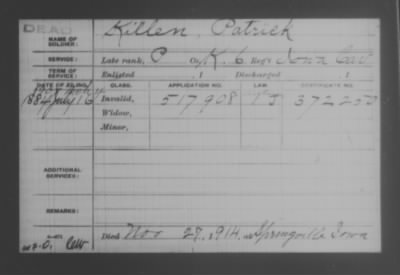 DEAD
NAME OF SOLDIER: Killen, Patrick
SERVICE: Late rank, P Co. K, 6 Reg't Iowa Cav
TERM OF SERVICE: Enlisted , 1 Discharged , 1
DATE OF FILING. CLASS. APPLICATION NO. LAW. CERTIFICATE NO.
1884 July 16 Invalid, 517908 372250
Widow,
Minor,
ADDITIONAL SERVICES:
REMARKS:
Died Nov 27, 1914, at Springville Iowa